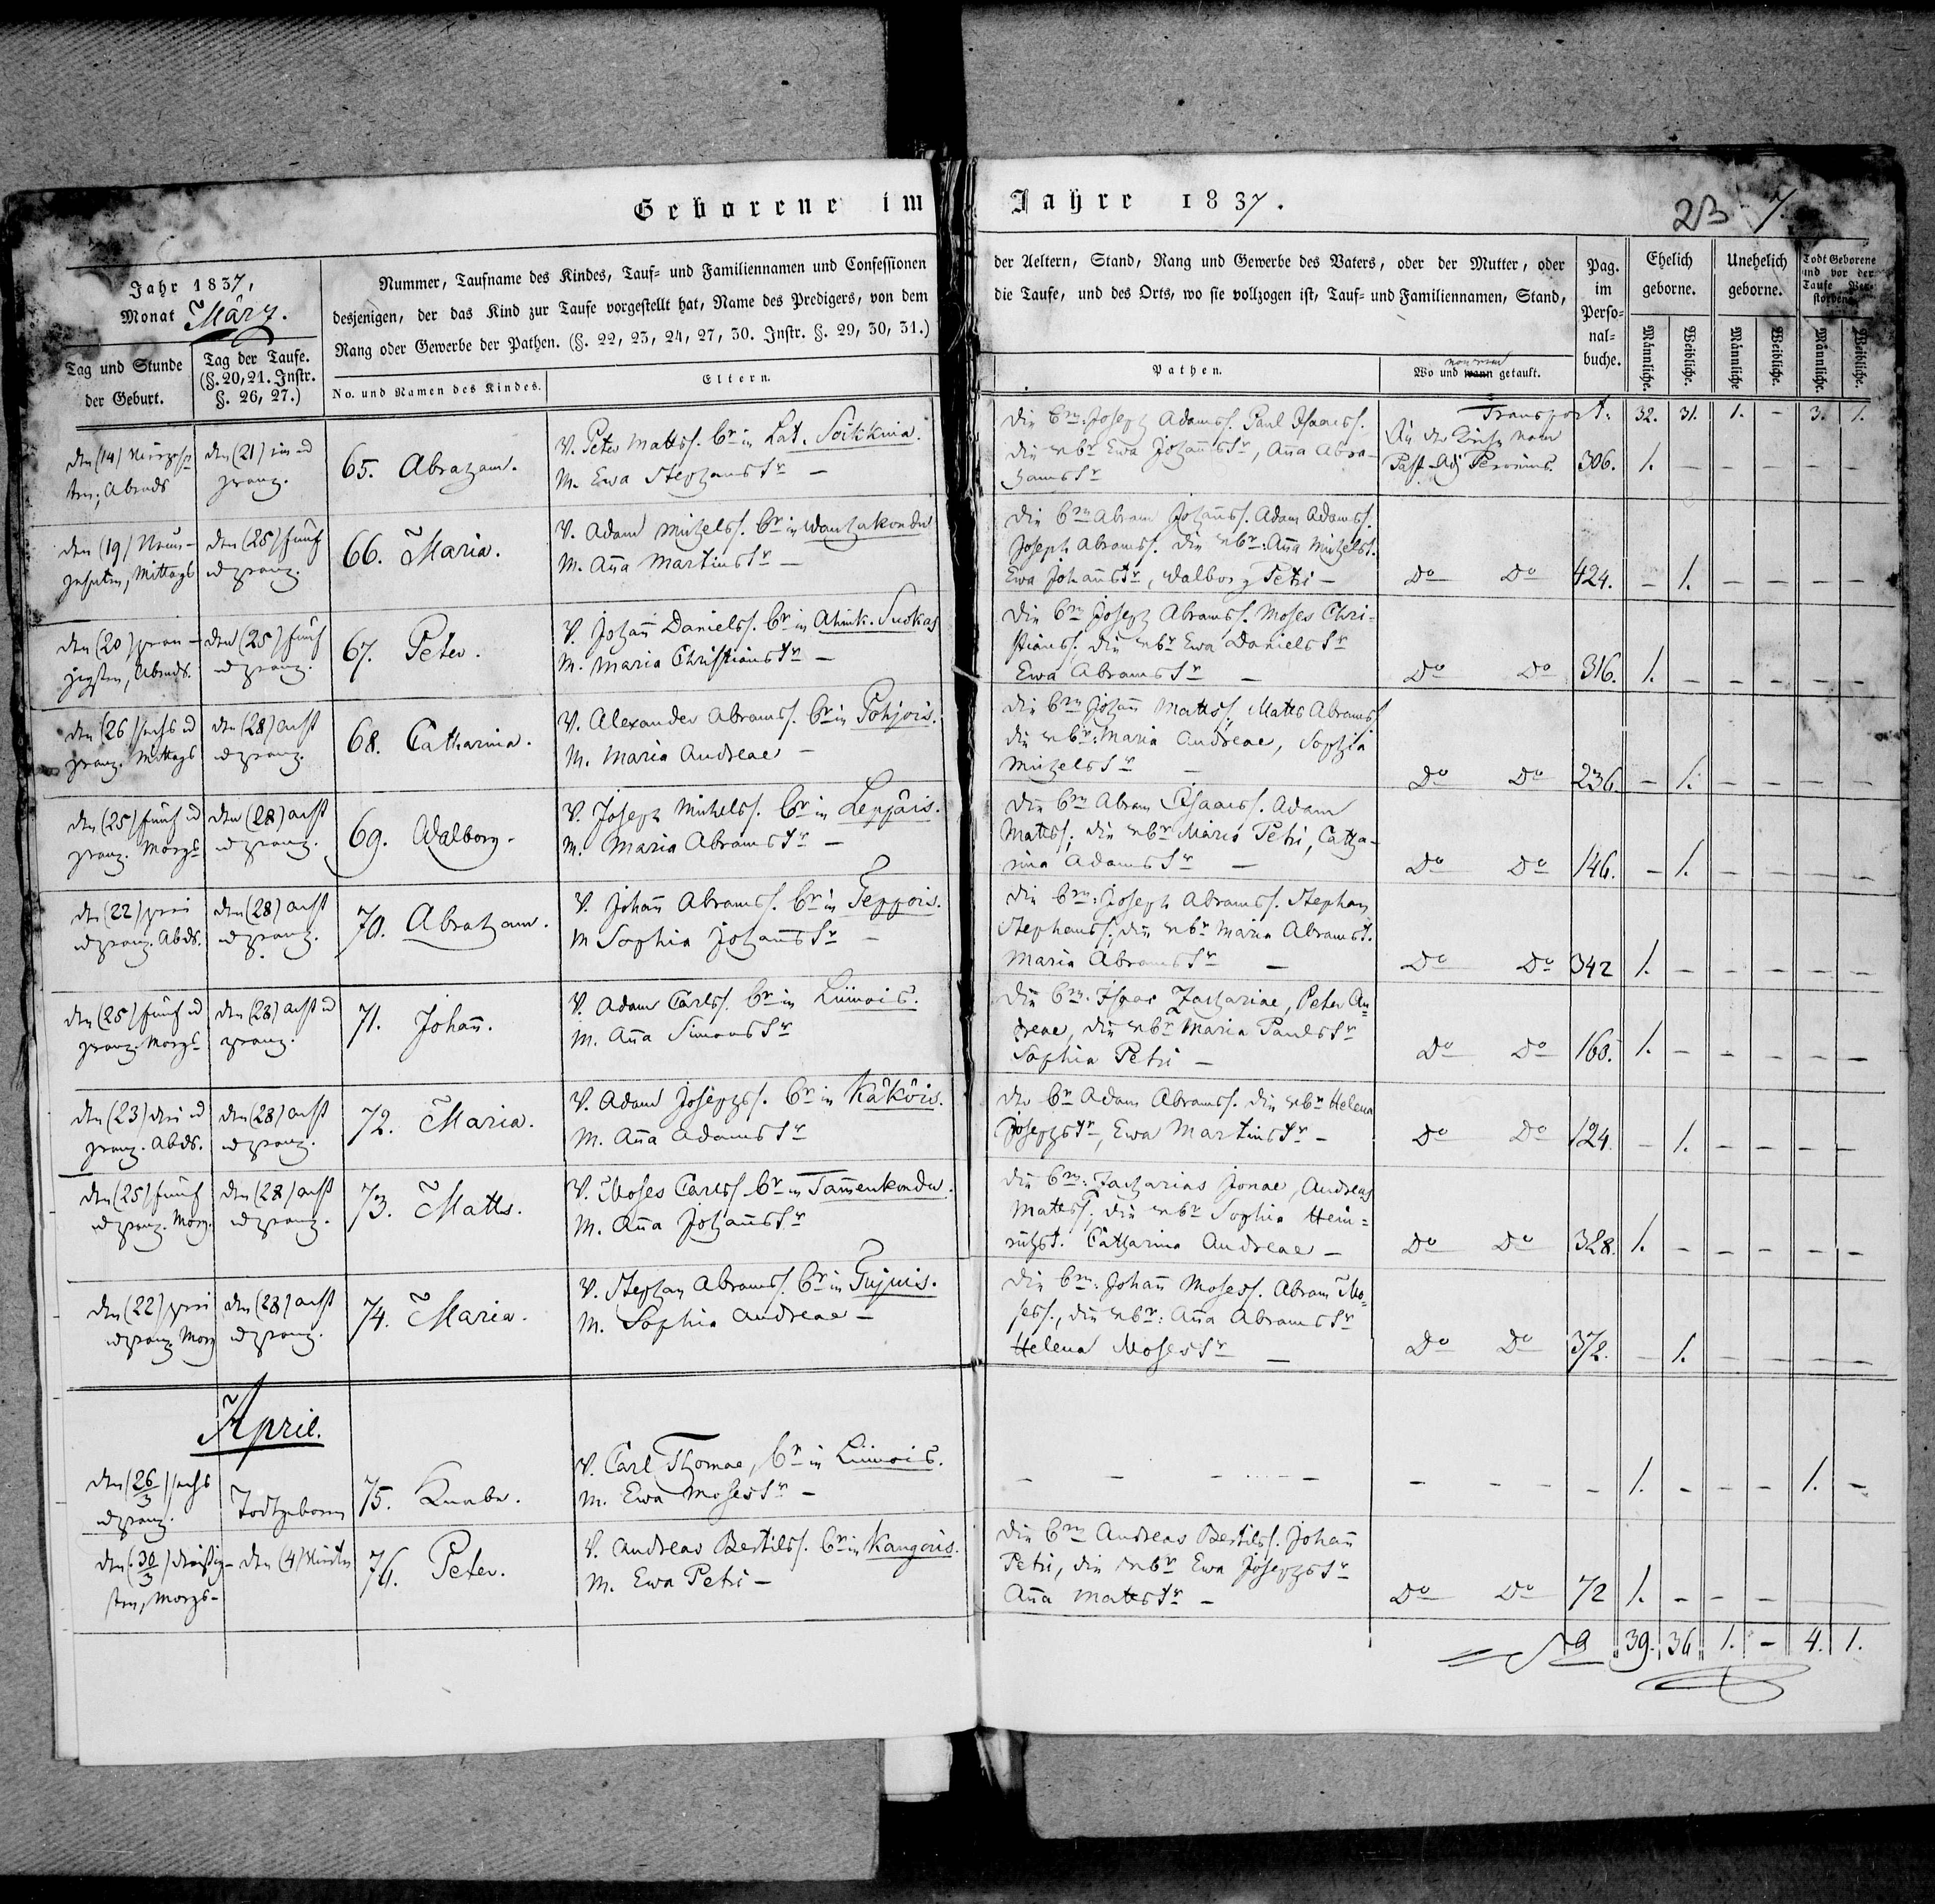 Geborene im Jahre 1837.
23 7.
Jahr 1837,
Monat März.
Tag und Stunde
der Geburt.
Tag der Taufe.
(§. 20, 21. Instr.
§. 26, 27.)
Nummer, Taufname des Kindes, Tauf- und Familiennamen und Confessionen
desjenigen, der das Kind zur Taufe vorgestellt hat, Name des Predigers, von dem
Rang oder Gewerbe der Pathen. (§. 22, 23, 24, 27, 30. Instr. §. 29, 30, 31.)
No. und Namen des Kindes.
Eltern.
der Aeltern, Stand, Rang und Gewerbe des Vaters, oder der Mutter, oder
die Taufe, und des Orts, wo sie vollzogen ist, Tauf- und Familiennamen, Stand,
Pathen.
von wem
Wo und wann getauft.
Pag.
im
Perso-
nal-
buche.
Ehelich
geborne.
Unehelich
geborne.
Todt Geborene
und vor der
Taufe Ver-
storbene.
Männliche.
Weibliche.
Männliche
Weibliche.
Männliche.
Weibliche.
Transport. 32. 31. 1. - 3. 1.
den (14) Vierzehn
ten, Abends
den (21) ein u
zwanz.
65. Abraham.
V. Peter Mattss. Br in Lat. Soikkina.
M. Ewa Stephanstr —
Die Brn: Joseph Adamss. Paul Isaacss.
die Wbr Ewa Johannstr, Anna Abra-
hamstr
In der Kirche vom
Past. Adj
306. 1. - - - - -
den (19) Neun-
zehnten, Mittags
den (25) fünf
u zwanz.
66. Maria.
V. Adam Michelss. Br in Wanhakondu
M. Anna Martinstr —
Die Brn Abram Johannss. Adam Adamss.
Joseph Abramss. die Wbr: Anna Michelst.
Ewa Johannstr, Walborg Petri —
Do Do 424. - 1. - - - -
den (20) zwan-
zigsten, Abends.
den (25) fünf
u zwanz.
67. Peter.
V. Johann Danielss. Br in Suokas
M. Maria Christianstr —
Die Brn Joseph Abramss. Moses Chri-
stianss. die Wbr Ewa Danielstr
Ewa Abramstr —
Do Do 316. 1. - - - - -
den (26) sechs u
zwanz. Mittags
den (28) acht
u zwanz.
68. Catharina.
V. Alexander Abramss. Br in Pohjois.
M. Maria Andreae —
Die Brn Johann Mattss. Matts Abramss.
die Wbr: Maria Andreae, Sophia
Michelstr —
Do Do 236. - 1. - - - -
den (25) fünf u
zwanz. Morgs
den (28) acht
u zwanz.
69. Walborg.
V. Joseph Michelss. Br in Leppäis.
M. Maria Abramstr —
Die Brn Abram Isaacss. Adam
Mattss; die Wbr Maria Petri, Catha-
rina Adamstr —
Do Do 146. - 1. - - - -
den (22) zwei
u zwanz. Abds.
den (28) acht
u zwanz.
70. Abraham.
V. Johann Abramss. Br in Teppois.
M Sophia Johannstr —
Die Brn: Joseph Abramss. Stephan
Stephanss; die Wbr Maria Abramst.
Maria Abramstr —
Do Do 342 1. - - - - -
den (25) fünf u
zwanz. Morgs
den (28) acht u
zwanz.
71. Johann.
V. Adam Carlss. Br in Liimois.
M. Anna Simonstr
Die Brn: Isaac Zachariae, Peter An-
dreae, die Wbr Maria Paulstr
Sophia Petri —
Do Do 160. 1. - - - - -
den (23) drei u
zwanz. Abds.
den (28) acht
u zwanz.
72. Maria.
V. Adam Josephss. Br in Käköis.
M. Anna Adamstr
Der Br Adam Abramss. die Wbr Helena
Josephstr, Ewa Martinstr —
Do Do 124. - 1. - - - -
den (25) fünf
u zwanz. Morg.
den (28) acht
u zwanz.
73. Matts.
V. Moses Carlss Br in Tammenkondu.
M. Anna Johannstr
Die Brn: Zacharias Jonae, Andreas
Mattss. die Wbr Sophia Hein=
richst. Catharina Andreae —
Do Do 328. 1. - - - - -
den (22) zwei
u zwanz Morg
den (28) acht
u zwanz.
74. Maria.
V. Stephan Abramss. Br in Tujuis.
M. Sophia Andreae —
Die Brn: Johann Mosess. Abram Mo-
sess., die Wbr: Anna Abramstr
Helena Mosestr —
Do Do 372. - 1. - - - -
April.
den (26/3) sechs
u zwanz.
Todtgeboren
75. Knabe.
V. Carl Thomae, Br in Liimois.
M. Ewa Mosestr —
- - - - - - - - 1. - - - 1. -
den (30/3) dreißig-
sten, Morgs-
den (4) Vierten
76. Peter.
V. Andreas Bertilss. Br in Kangois.
M. Ewa Petri —
Die Brn Andreas Bertilss. Johann
Petri, die Wbr Ewa Josephstr
Anna Mattstr —
Do Do 72 1. - - -
39. 36. 1. - 4. 1.